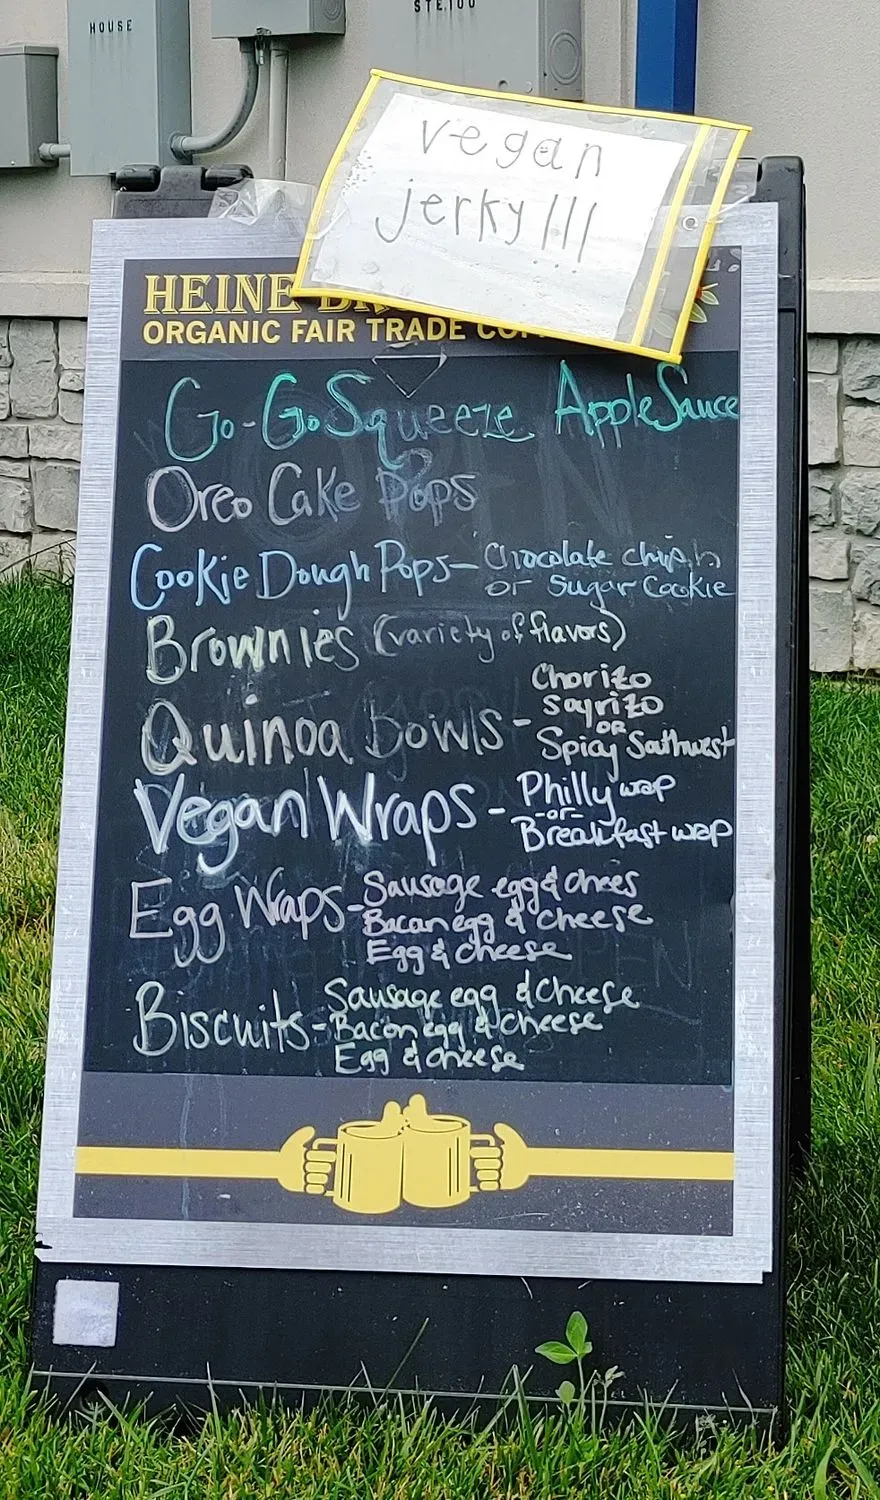 HOUSE
STE.100
vegan
jerky!!!
HEINE
ORGANIC FAIR TRADE
Go-Go Squeeze AppleSauce
Oreo Cake Pops
Cookie Dough Pops- Chocolate chip
or Sugar Cookie
Brownies (variety of flavors)
Quinoa Bowls - Chorizo
Soyrizo
OR
Spicy Southwest
Vegan Wraps - Philly wrap
-or-
Breakfast wrap
Egg Wraps - Sausage egg & chees
Bacon egg & cheese
Egg & cheese
Biscuits - Sausage egg & cheese
Bacon egg & cheese
Egg & cheese